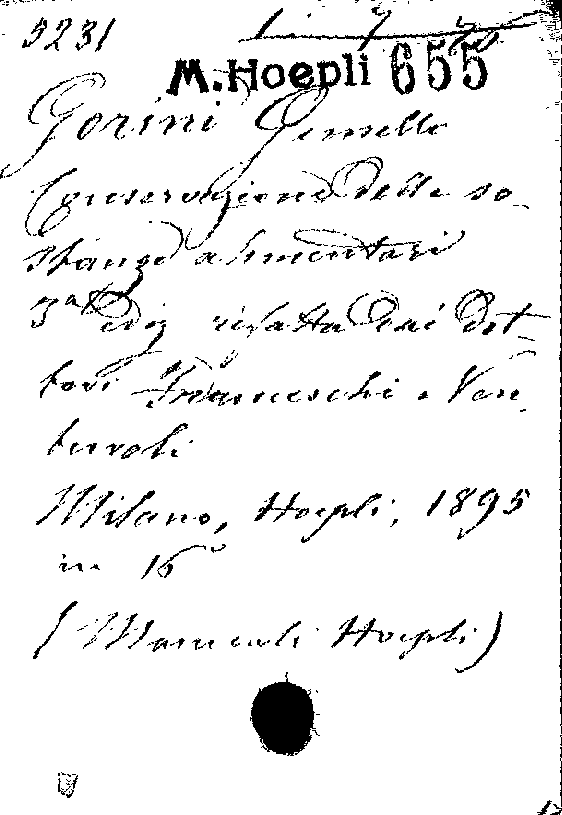 5231
M. Hoepli 655
Gorini Gemello
Conservazione delle so-
stanze alimentari
3ª ediz rifatta dai dot-
tori Franceschi e Ven-
turoli
Milano, Hoepli, 1895
in 16°
(Manuali Hoepli)